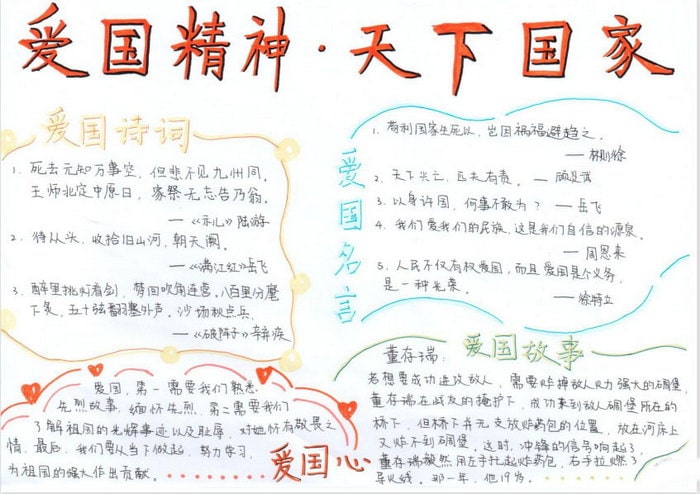 爱国精神·天下国家
爱国诗词
1、死去元知万事空，但悲不见九州同。
王师北定中原日，家祭无忘告乃翁。
—《示儿》陆游
2、待从头，收拾旧山河，朝天阙。
—《满江红》岳飞
3、醉里挑灯看剑，梦回吹角连营。八百里分麾
下炙，五十弦翻塞外声，沙场秋点兵。
—《破阵子》辛弃疾
爱国名言
1、苟利国家生死以，岂因祸福避趋之。
—林则徐
2、天下兴亡，匹夫有责。—顾炎武
3、以身许国，何事不敢为？—岳飞
4、我们爱我们的民族，这是我们自信的源泉。
—周恩来
5、人民不仅有权爱国，而且爱国是个义务，
是一种光荣。
—徐特立
爱国心
爱国，第一需要我们熟悉
先烈故事，缅怀先烈，第二需要我们
了解祖国的光辉事迹以及耻辱，对她怀有敬畏之
情。最后，我们要从当下做起，努力学习，
为祖国的强大作出贡献。
爱国故事
董存瑞：
若想要成功进攻敌人，需要炸掉敌人火力强大的碉堡，
董存瑞在战友的掩护下，成功来到敌人碉堡所在的
桥下，但桥下并无支放炸药包的位置，放在河床上
又炸不到碉堡，这时，冲锋的信号响起了，
董存瑞毅然用左手托起炸药包，右手拉燃了
导火线。那一年，他19岁。